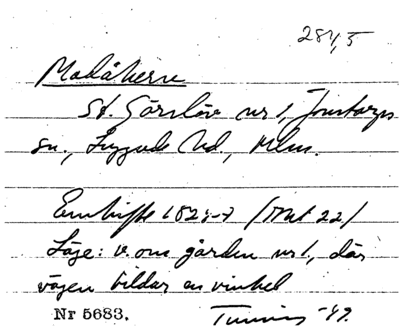 284,5
Madåkerne
St. Görslöv nr 1, Jonstorps
sn., Luggude hd., Mlms.
Enskifte 1826-7 (Akt 22)
Läge: v. om gården nr 1, där
vägen bildar en vinkel
Nr 5683. Tuneus -49.